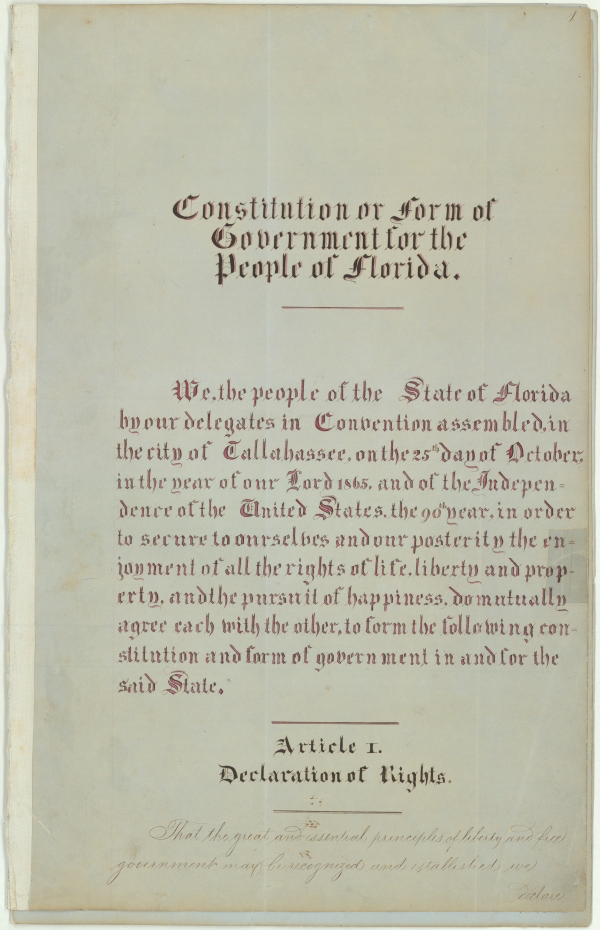 1
Constitution or Form of
Government for the
People of Florida.
We, the people of the State of Florida
by our delegates in Convention assembled, in
the city of Tallahassee, on the 25th day of October,
in the year of our Lord 1865, and of the Indepen=
dence of the United States, the 90th year, in order
to secure to ourselves and our posterity the en=
joyment of all the rights of life, liberty and prop-
erty, and the pursuit of happiness, do mutually
agree each with the other, to form the following con-
stitution and form of government in and for the
said State.
Article I.
Declaration of Rights.
That the great and essential principles of liberty and free
government may be recognized and established, we
declare